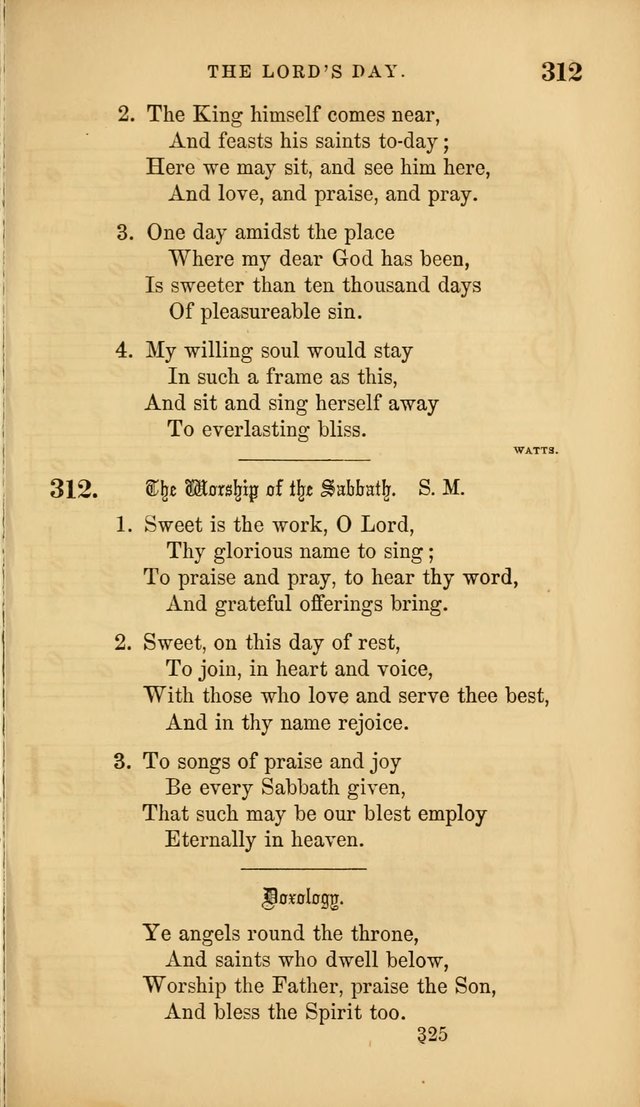 THE LORD'S DAY. 312
2. The King himself comes near,
And feasts his saints to-day;
Here we may sit, and see him here,
And love, and praise, and pray.
3. One day amidst the place
Where my dear God has been,
Is sweeter than ten thousand days
Of pleasureable sin.
4. My willing soul would stay
In such a frame as this,
And sit and sing herself away
To everlasting bliss.
WATTS.
312. The Worship of the Sabbath. S. M.
1. Sweet is the work, O Lord,
Thy glorious name to sing;
To praise and pray, to hear thy word,
And grateful offerings bring.
2. Sweet, on this day of rest,
To join, in heart and voice,
With those who love and serve thee best,
And in thy name rejoice.
3. To songs of praise and joy
Be every Sabbath given,
That such may be our blest employ
Eternally in heaven.
Doxology.
Ye angels round the throne,
And saints who dwell below,
Worship the Father, praise the Son,
And bless the Spirit too.
325